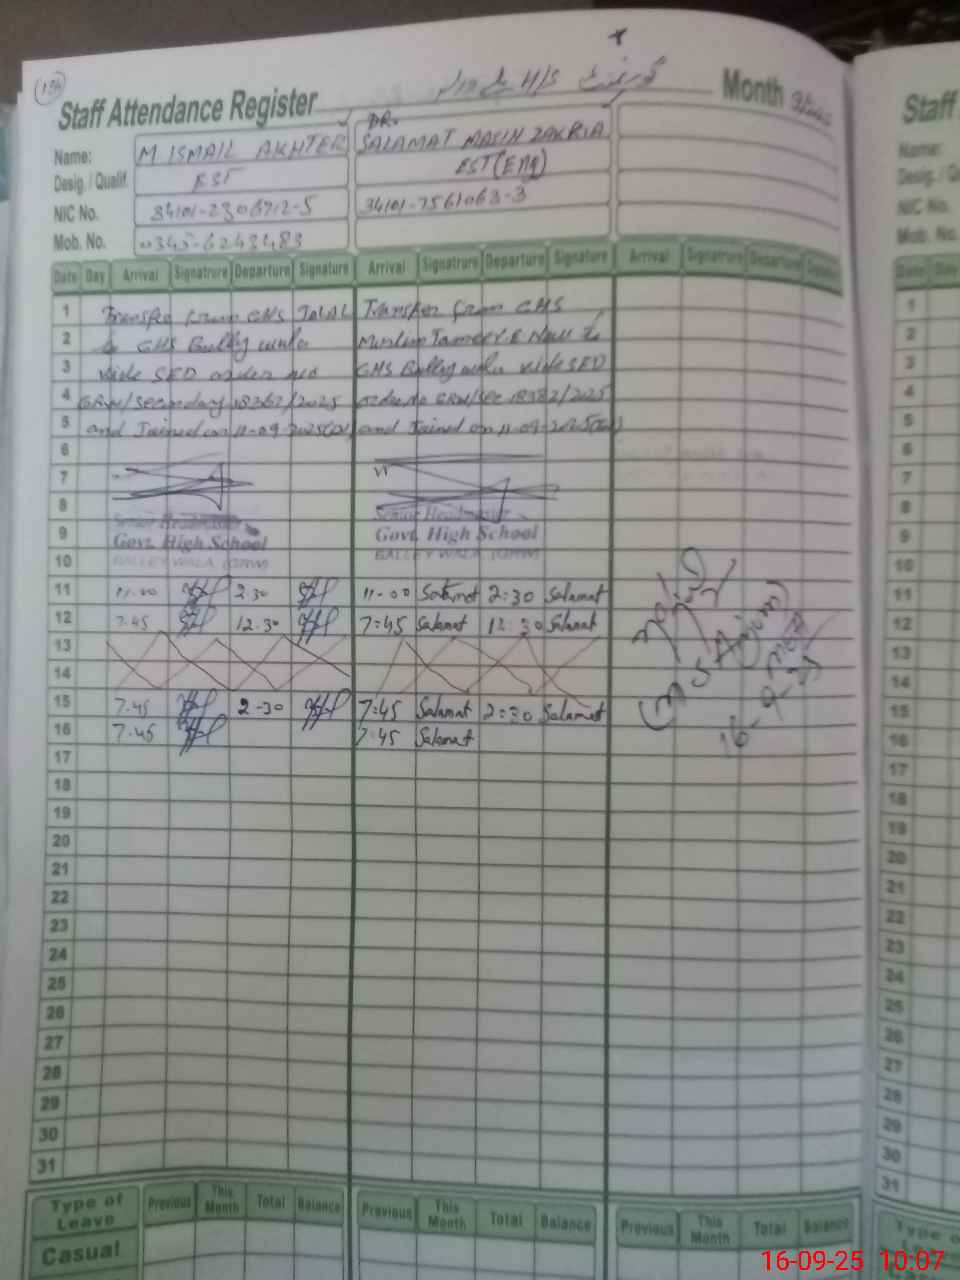 Staff Attendance Register
Month 9/2025
Name: M ISMAIL AKHTER DR. SALAMAT MASIH ZAKRIA
Desig./ Qualif. EST EST(Eng)
NIC No. 34101-2306712-5 34101-7561063-3
Mob. No. 0345-6243483
Date Day Arrival Signatrure Departure Signature Arrival Signatrure Departure Signature Arrival Signatrure Departure
1 Transfer from GHS Transfer from GHS
2 to GHS Balley wala Muslim Tameer-E-
3 vide SED order no GHS Balley wala vide SED
4 GRW/Secondary 18367/2025 order no GRW/Sec 18382/2025
5 and Joined on 11-09-2025 and Joined on 11-09-2025
6
7
8 Senior Headmaster Senior Headmaster
9 Govt. High School Govt. High School
10 BALLEY WALA (GRW) BALLEY WALA (GRW)
11 11-00 2.30 11-00 Salamat 2:30 Salamat
12 7.45 12.30 7:45 Salamat 12:30 Salamat
13
14
15 7.45 2-30 7:45 Salamat 2:30 Salamat
16 7.45 7:45 Salamat
(M S Anjum)
16-9-25
17
18
19
20
21
22
23
24
25
26
27
28
29
30
31
Type of Leave Previous This Month Total Balance Previous This Month Total Balance Previous This Month Total Balance
Casual
Staff
Name:
NIC No.
Mob. No.
Date Day
1
2
3
4
5
6
7
8
9
10
11
12
13
14
15
16
17
18
19
20
21
22
23
24
25
26
27
28
29
30
31
Type o
16-09-25 10:07